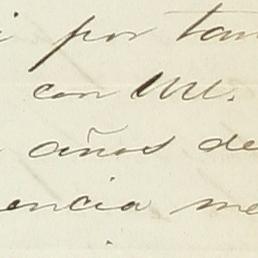 i por tan
con UU.
años de
encia me